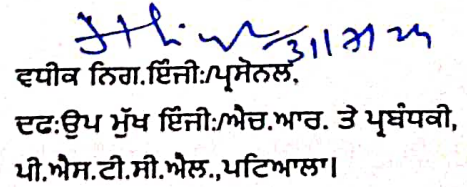 ਵਧੀਕ ਨਿਗ.ਇੰਜੀ:/ਪ੍ਰਸੋਨਲ,
ਦਫ:ਉਪ ਮੁੱਖ ਇੰਜੀ:/ਐਚ.ਆਰ. ਤੇ ਪ੍ਰਬੰਧਕੀ,
ਪੀ.ਐਸ.ਟੀ.ਸੀ.ਐਲ.,ਪਟਿਆਲਾ।